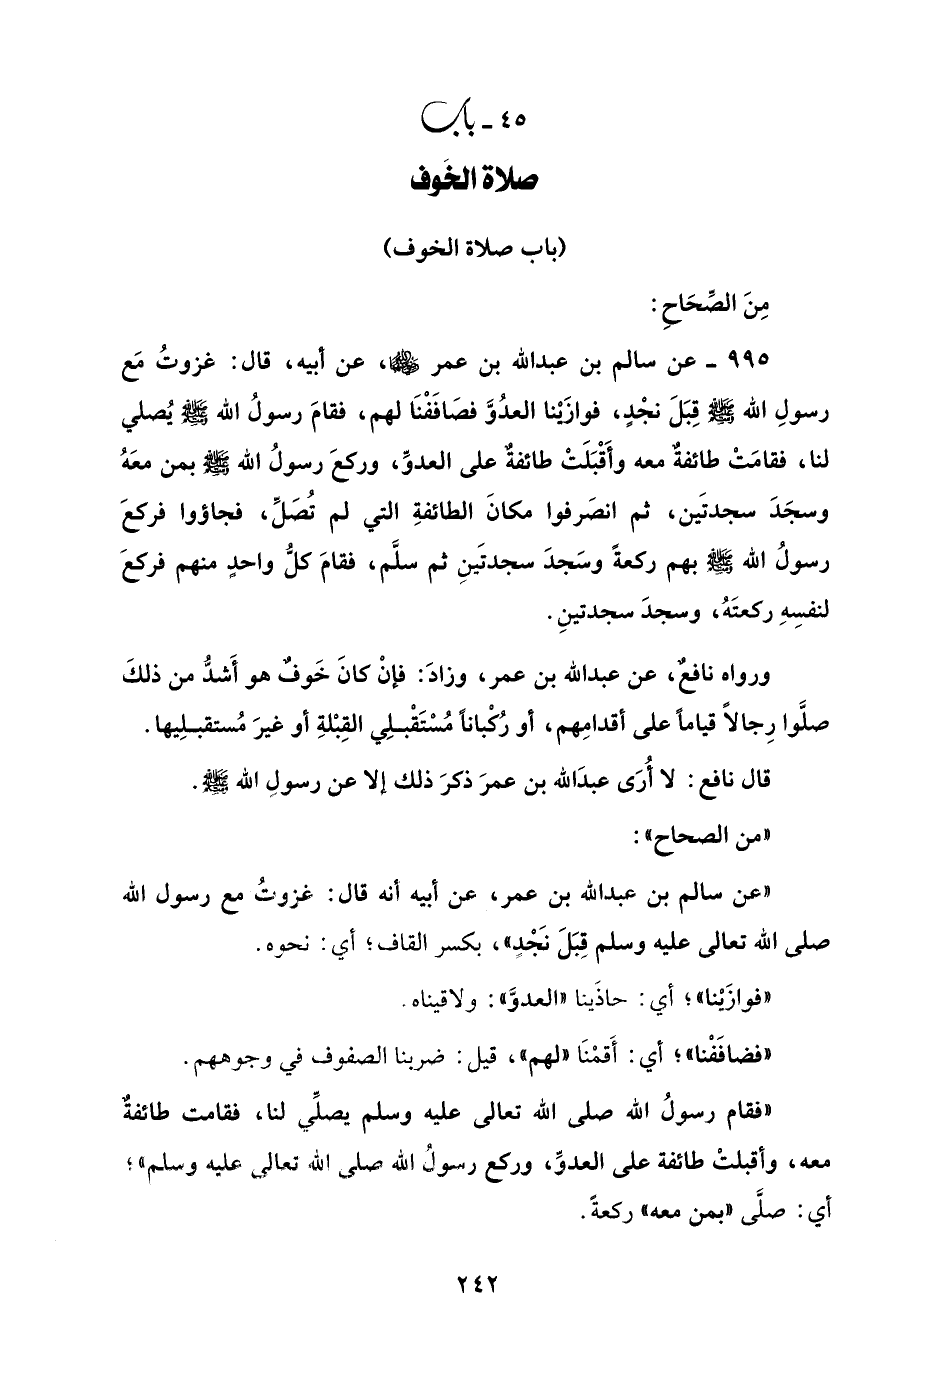 ٤٥ - باب
صلاة الخَوف
(باب صلاة الخوف)
مِنَ الصِّحَاحِ:
٩٩٥ - عن سالم بن عبدالله بن عمر ﷺ، عن أبيه، قال: غزوتُ مَع
رسولِ الله ﷺ قِبَلَ نجْدٍ، فوازَيْنا العدُوَّ فصَافَفْنَا لهم، فقامَ رسولُ الله ﷺ يُصلي
لنا، فقامَتْ طائفةٌ معه وأَقْبَلَتْ طائفةٌ على العدوِّ، وركعَ رسولُ الله ﷺ بمن معَهُ
وسجَدَ سجدتَين، ثم انصَرفوا مكانَ الطائفةِ التي لم تُصَلِّ، فجاؤوا فركعَ
رسولُ الله ﷺ بهم ركعةً وسَجدَ سجدتَينِ ثم سلَّم، فقامَ كلُّ واحدٍ منهم فركعَ
لنفسِهِ ركعتَهُ، وسجدَ سجدتينِ.
ورواه نافعٌ، عن عبدالله بن عمر، وزادَ: فإنْ كانَ خَوفٌ هو أَشدُّ من ذلكَ
صلَّوا رِجالاً قياماً على أقدامِهم، أو رُكْباناً مُسْتَقْبلِي القِبْلةِ أو غيرَ مُستقبلِيها.
قال نافع: لا أُرَى عبدَالله بن عمرَ ذكرَ ذلك إلا عن رسولِ الله ﷺ.
«من الصحاح»:
«عن سالم بن عبدالله بن عمر، عن أبيه أنه قال: غزوتُ مع رسول الله
صلى الله تعالى عليه وسلم قِبَلَ نَجْدٍ»، بكسر القاف؛ أي: نحوه.
«فوازَيْنا»؛ أي: حاذَينا «العدوَّ»: ولاقيناه.
«فضافَفْنا»؛ أي: أَقمْنَا «لهم»، قيل: ضربنا الصفوف في وجوههم.
«فقام رسولُ الله صلى الله تعالى عليه وسلم يصلِّي لنا، فقامت طائفةٌ
معه، وأقبلتْ طائفة على العدوِّ، وركع رسولُ الله صلى الله تعالى عليه وسلم»؛
أي: صلَّى «بمن معه» ركعةً.
٢٤٢